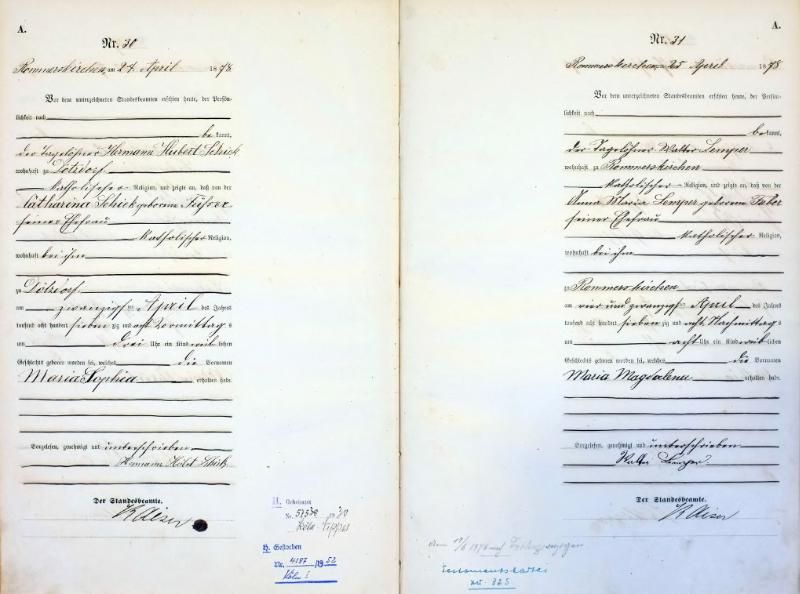 A.
Nr. 30
Rommerskirchen am 24 April 1878
Vor dem unterzeichneten Standesbeamten erschien heute, der Persön-
lichkeit nach
bekannt,
der Tagelöhner Hermann Hubert Schick
wohnhaft zu
katholischer Religion, und zeigte an, daß von der
Catharina Schick geborene
seiner Ehefrau
katholischer Religion,
wohnhaft bei ihm
zu
am zwanzigsten April des Jahres
tausend acht hundert siebenzig und acht Vormittags
um drei Uhr ein Kind weiblichen
Geschlechts geboren worden sei, welches die Vornamen
Maria Sophia erhalten habe.
Vorgelesen, genehmigt und unterschrieben
Hermann Hubert Schick
Der Standesbeamte.
H. Geheiraten
Nr.
H. Gestorben
Nr. 4187 /1952
Köln I
A.
Nr. 31
Rommerskirchen, am 25 April 1878
Vor dem unterzeichneten Standesbeamten erschien heute, der Persön-
lichkeit nach
bekannt,
der Tagelöhner Walter Lemper
wohnhaft zu Rommerskirchen
katholischer Religion, und zeigte an, daß von der
Anna Maria Lemper geborene
seiner Ehefrau
katholischer Religion,
wohnhaft bei ihm
zu Rommerskirchen
am vier und zwanzigsten April des Jahres
tausend acht hundert siebenzig und acht Nachmittags
um acht Uhr ein Kind weiblichen
Geschlechts geboren worden sei, welches die Vornamen
Maria Magdalena erhalten habe.
Vorgelesen, genehmigt und unterschrieben
Walter Lemper
Der Standesbeamte.
Testamentskartei
Nr. 325